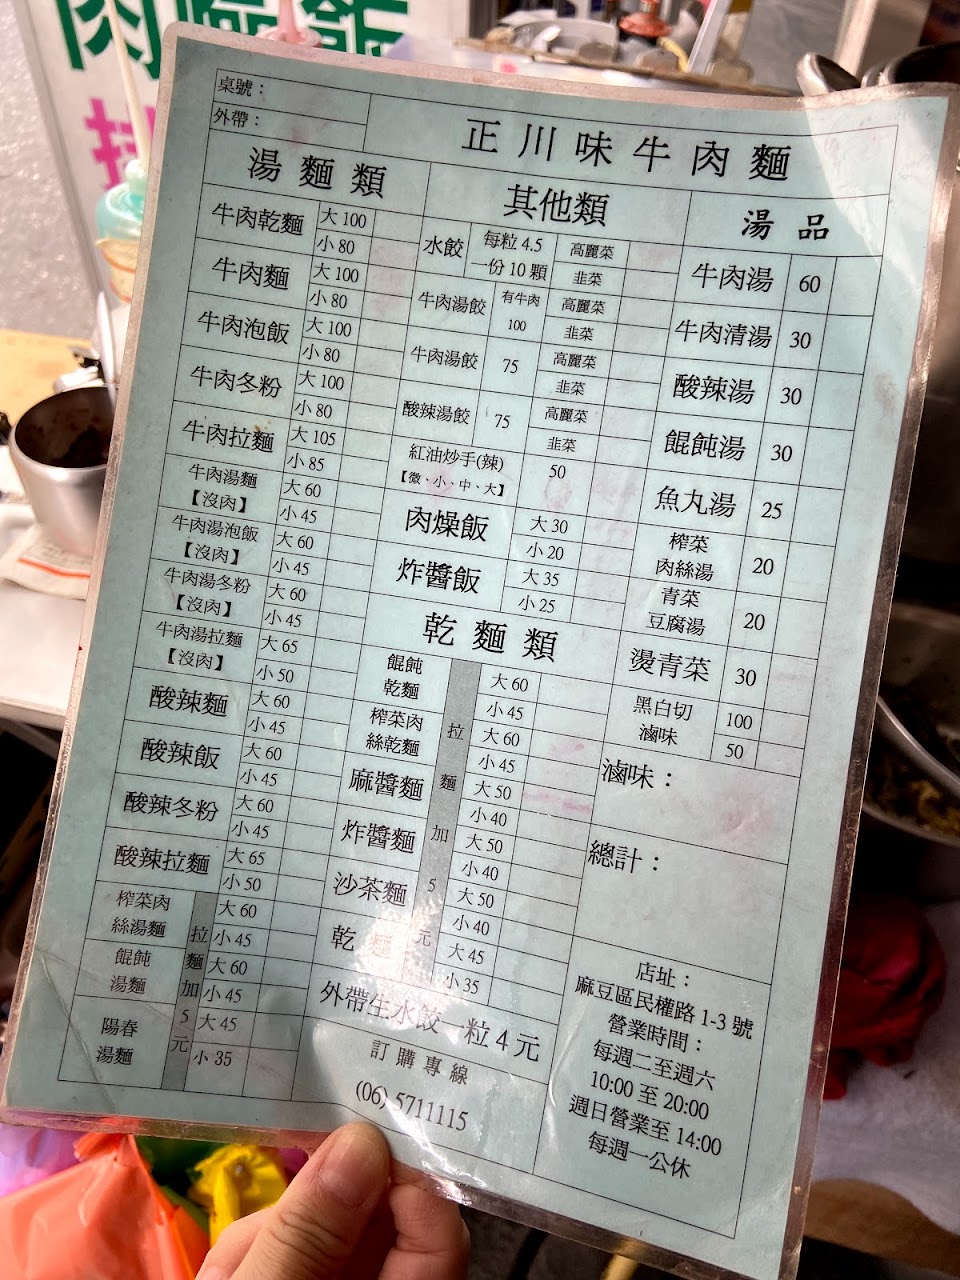 肉燥飯
桌號：
外帶：
正川味牛肉麵
湯麵類
牛肉乾麵 大 100
小 80
牛肉麵 大 100
小 80
牛肉泡飯 大 100
小 80
牛肉冬粉 大 100
小 80
牛肉拉麵 大 105
小 85
牛肉湯麵 大 60
【沒肉】 小 45
牛肉湯泡飯 大 60
【沒肉】 小 45
牛肉湯冬粉 大 60
【沒肉】 小 45
牛肉湯拉麵 大 65
【沒肉】 小 50
酸辣麵 大 60
小 45
酸辣飯 大 60
小 45
酸辣冬粉 大 60
小 45
酸辣拉麵 大 65
小 50
榨菜肉 大 60
絲湯麵 小 45
餛飩 大 60
湯麵 小 45
陽春 大 45
湯麵 小 35
拉麵加5元
其他類
水餃 每粒 4.5 高麗菜
一份 10 顆 韭菜
牛肉湯餃 有牛肉 高麗菜
100 韭菜
牛肉湯餃 75 高麗菜
韭菜
酸辣湯餃 75 高麗菜
韭菜
紅油炒手(辣) 50
【微、小、中、大】
肉燥飯 大 30
小 20
炸醬飯 大 35
小 25
乾麵類
餛飩 大 60
乾麵 小 45
榨菜肉 大 60
絲乾麵 小 45
麻醬麵 大 50
小 40
炸醬麵 大 50
小 40
沙茶麵 大 50
小 40
乾麵 大 45
小 35
拉麵加5元
外帶生水餃一粒 4 元
訂購專線
(06) 5711115
湯品
牛肉湯 60
牛肉清湯 30
酸辣湯 30
餛飩湯 30
魚丸湯 25
榨菜
肉絲湯 20
青菜
豆腐湯 20
燙青菜 30
黑白切 100
滷味 50
滷味：
總計：
店址：
麻豆區民權路 1-3 號
營業時間：
每週二至週六
10:00 至 20:00
週日營業至 14:00
每週一公休